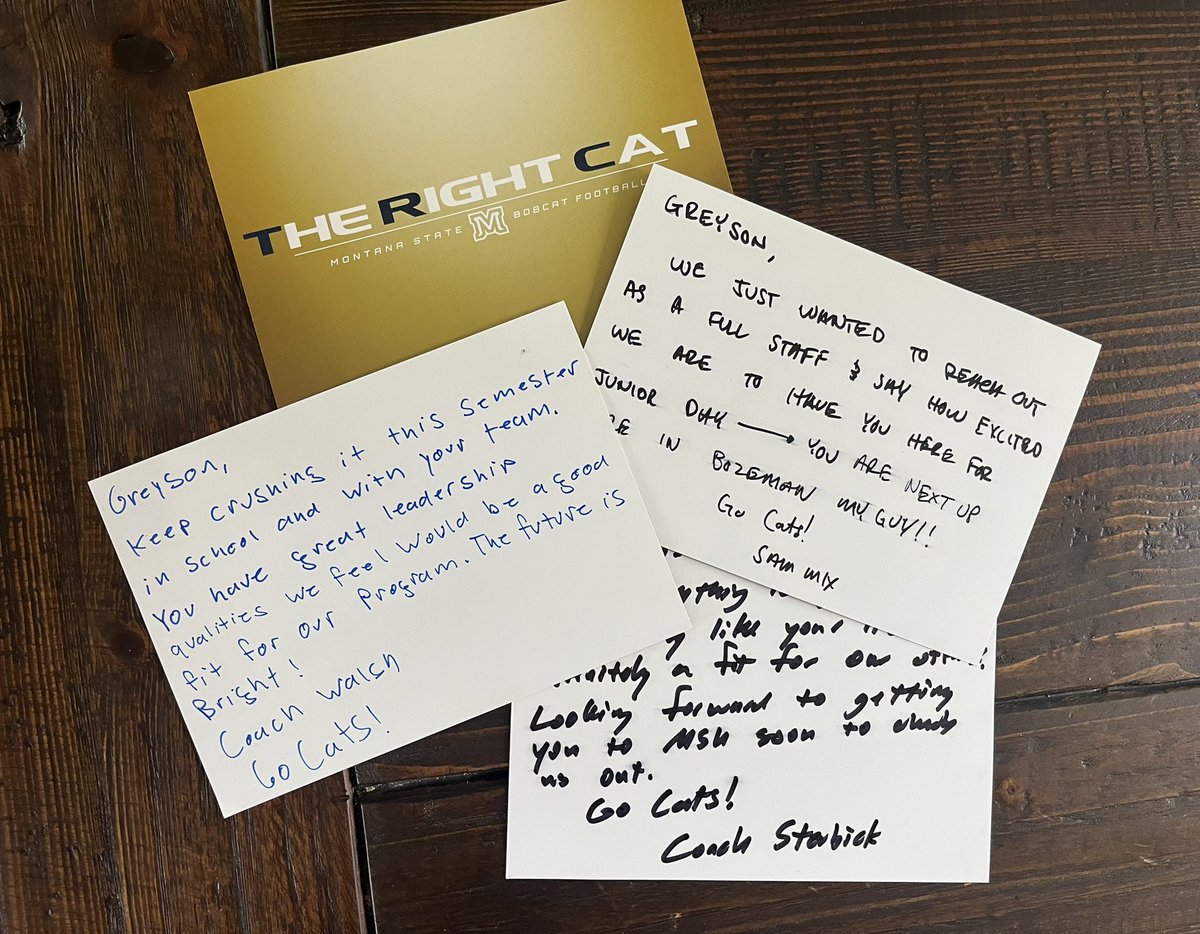 THE RIGHT CAT
MONTANA STATE M BOBCAT FOOTBALL
GREYSON,
WE JUST WANTED TO REACH OUT
AS A FULL STAFF & SAY HOW EXCITED
WE ARE TO HAVE YOU HERE FOR
JUNIOR DAY → YOU ARE NEXT UP
IN BOZEMAN MY GUY!!
Go Cats!
SAM MIX
Greyson,
Keep crushing it this semester
in school and with your team.
You have great leadership
qualities we feel would be a good
fit for our program. The future is
Bright!
Coach Walsh
Go Cats!
like your
a fit for our
Looking forward to getting
you to MSU soon to check
us out.
Go Cats!
Coach Sterbick